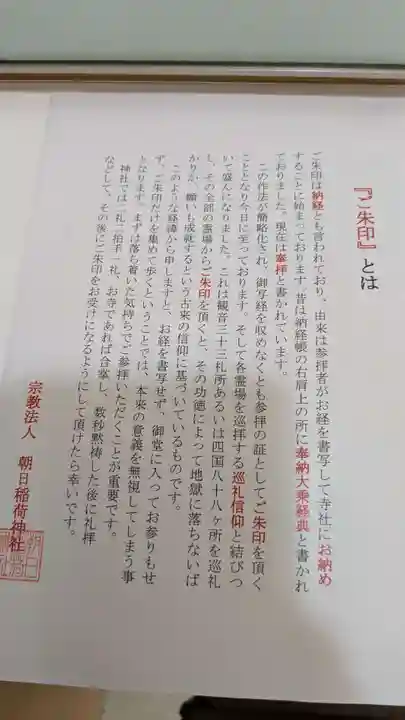 『ご朱印』とは
ご朱印は納経とも言われており、由来は参拝者がお経を書写して寺社にお納め
することに始まっております。昔は納経帳の右肩上の所に奉納大乗経典と書かれ
ておりました。現在は奉拝と書かれています。
この作法が簡略化され、御写経を収めなくとも参拝の証としてご朱印を頂く
こととなり今日に至っております。そして各霊場を巡拝する巡礼信仰と結びつ
いて盛んになりました。これは観音三十三札所あるいは四国八十八ヶ所を巡礼
し、その全部の霊場からご朱印を頂くと、その功徳によって地獄に落ちないば
かりか、願いも成就するという古来の信仰に基づいているものです。
このような経緯から申しますと、お経を書写せず、御堂に入ってお参りもせ
ず、ご朱印だけを集めて歩くということでは、本来の意義を無視してしまう事
となります。まずは落ち着いた気持ちでご参拝いただくことが重要です。
神社では二礼二拍手一礼、お寺であれば合掌し、数秒黙祷した後に礼拝
などして、その後にご朱印をお受けになるようにして頂けたら幸いです。
宗教法人 朝日稲荷神社